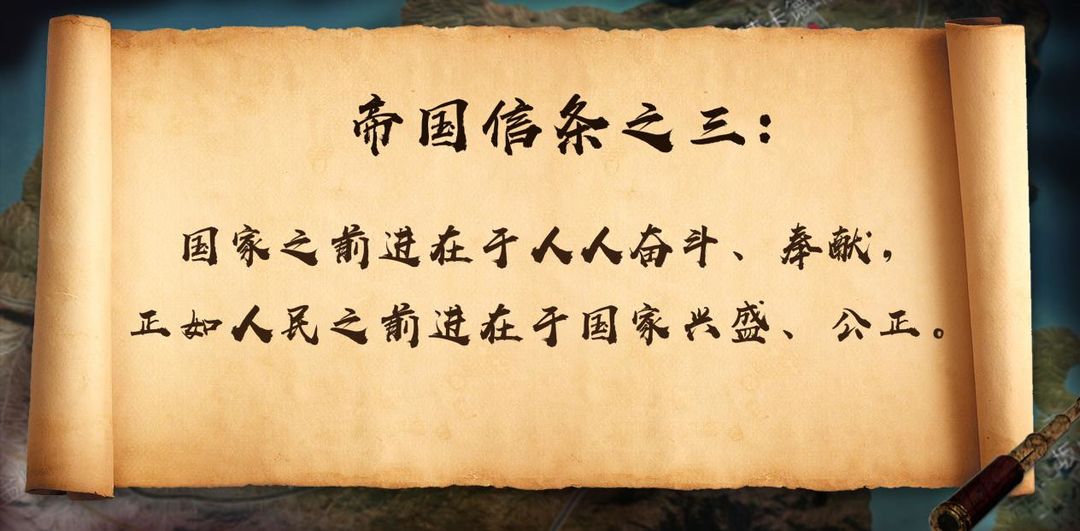 帝国信条之三：
国家之前进在于人人奋斗、奉献，
正如人民之前进在于国家兴盛、公正。